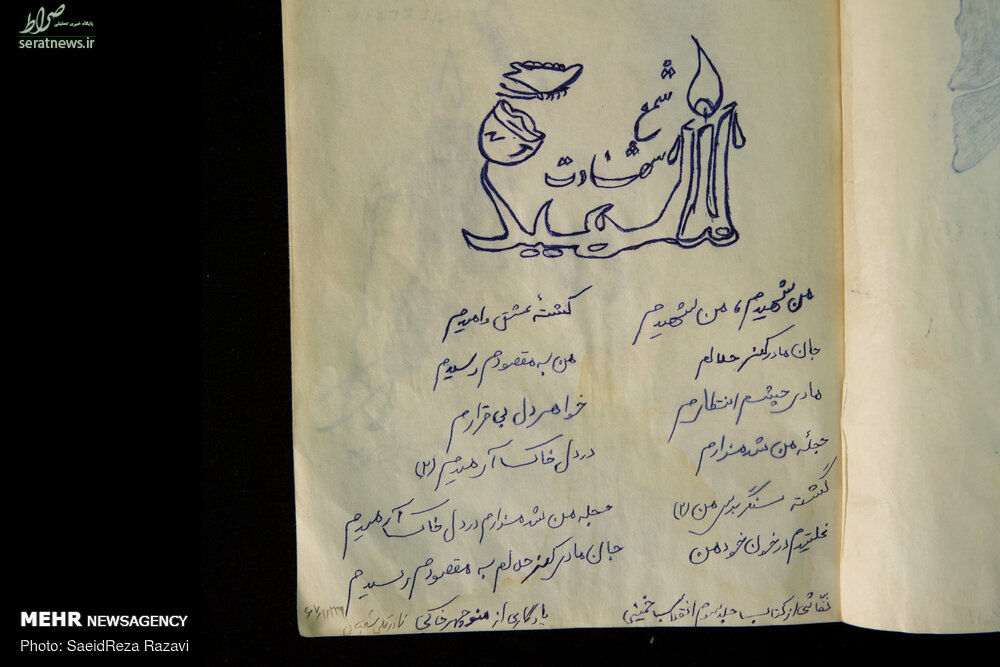 صراط
پایگاه خبری تحلیلی
seratnews.ir
شمع
شهادت
من شهیدم، من شهیدم کشتهٔ عشق و امیدم
جان مادر کن حلالم من به مقصودم رسیدم
مادر چشم انتظارم خواهر دل بی قرارم
حجلهٔ من شد مزارم در دل خاک آرمیدم (۲)
گشته سنگر بر من (۲)
غلتیدم در خون خود من
حجله من شد مزارم در دل خاک آرمیدم
جان مادر کن حلالم به مقصودم رسیدم
نقاشی از کتاب جلد سوم انقلاب خمینی
یادگاری از منوچهر خاکی
MEHR NEWSAGENCY
Photo: SaeidReza Razavi